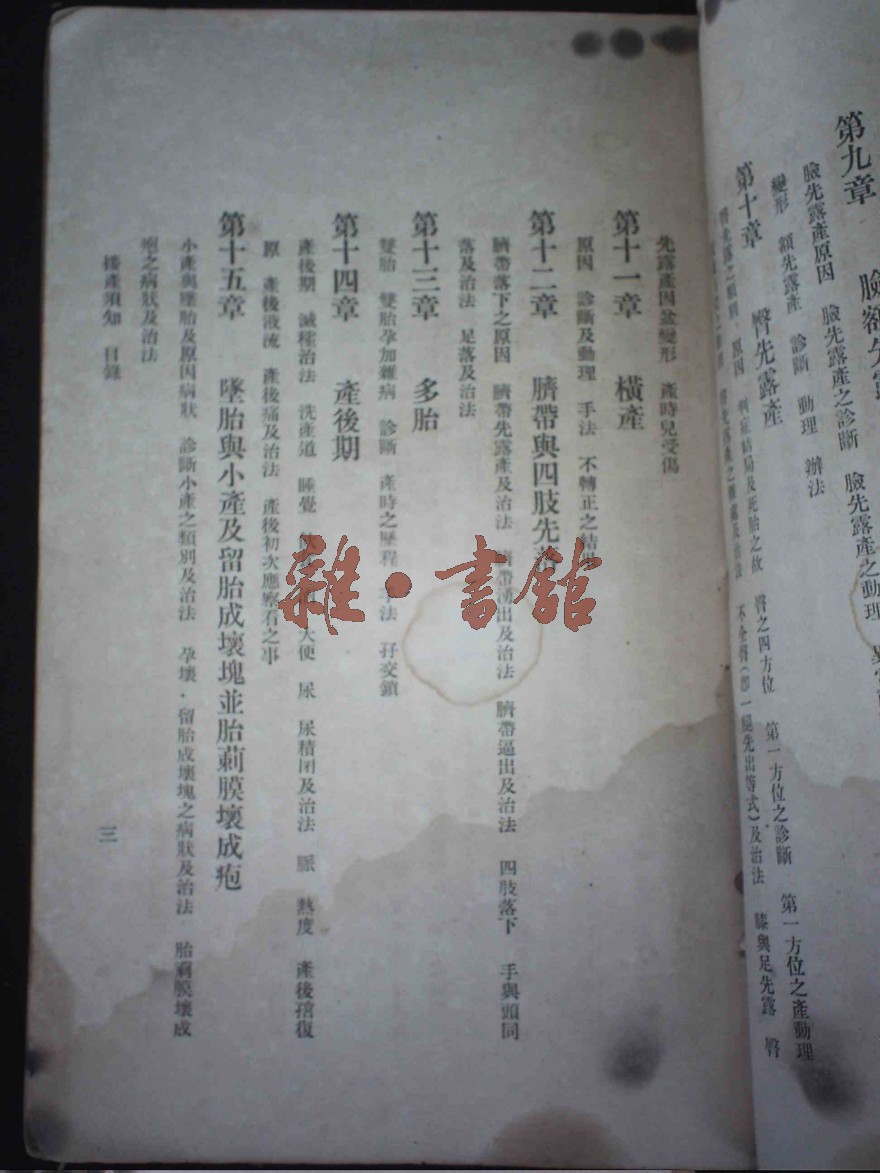 第九章
臉先露產原因 臉先露產之診斷 臉先露產之動理
變形 額先露產 診斷 動理 辦法
第十章 臀先露產
原因 判症結局及死胎之故 臀之四方位 第一方位之診斷 第一方位之產動理
不全臀(即一腿先出等式)及治法 膝與足先露 臀
先露產因盆變形 產時兒受傷
第十一章 橫產
原因 診斷及動理 手法 不轉正之結
第十二章 臍帶與四肢先
臍帶落下之原因 臍帶先露產及治法 臍帶湧出及治法 臍帶逼出及治法 四肢落下 手與頭同
落及治法 足落及治法
第十三章 多胎
雙胎 雙胎孕加雜病 診斷 產時之歷程 法 孖交鎖
第十四章 產後期
產後期 滅種治法 洗產道 睡覺 大便 尿 尿積閉及治法 脈 熱度 產後復
原 產後液流 產後痛及治法 產後初次應察看之事
第十五章 墜胎與小產及留胎成壞塊並胎膜壞成疱
小產與墜胎及原因病狀 診斷小產之類別及治法 孕壞·留胎成壞塊之病狀及治法 胎膜壞成
疱之病狀及治法
接產須知 目錄
三
雜·書館